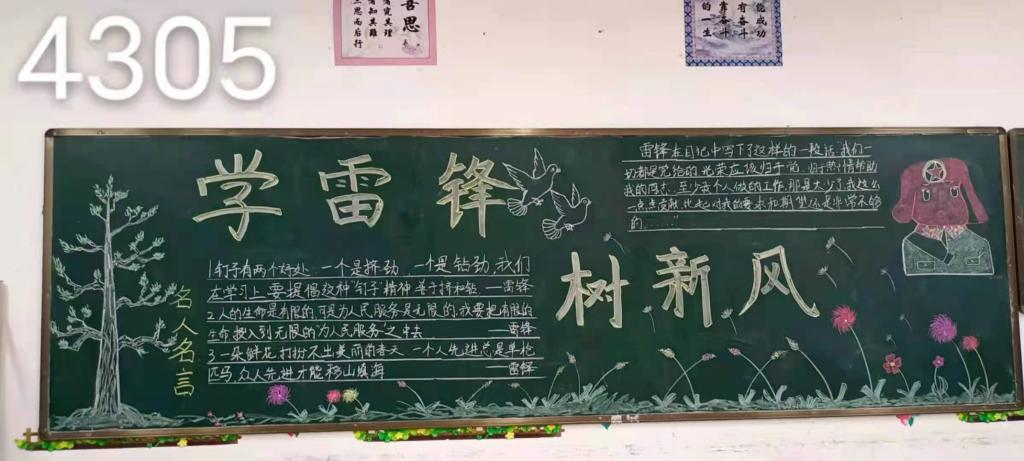 4305
善思
三思而后行
的一生
有奋斗
能成功
学雷锋
树新风
名人名言
1钉子有两个好处，一个是挤劲，一个是钻劲，我们
在学习上，要提倡这种"钉子"精神，善于挤和钻。——雷锋
2.人的生命是有限的，可是为人民服务是无限的，我要把有限的
生命，投入到无限的为人民服务之中去 ——雷锋
3.一朵鲜花打扮不出美丽的春天，一个人先进总是单枪
匹马，众人先进才能移山填海 ——雷锋
雷锋在日记中写下了这样的一段话：我们一
切都是党给的，光荣应该归于党，归热情帮助
我的同志，至少我个人做的工作，那是太少了，我这么
一点点贡献，比起对我的要求和期望还是非常不够
的……"